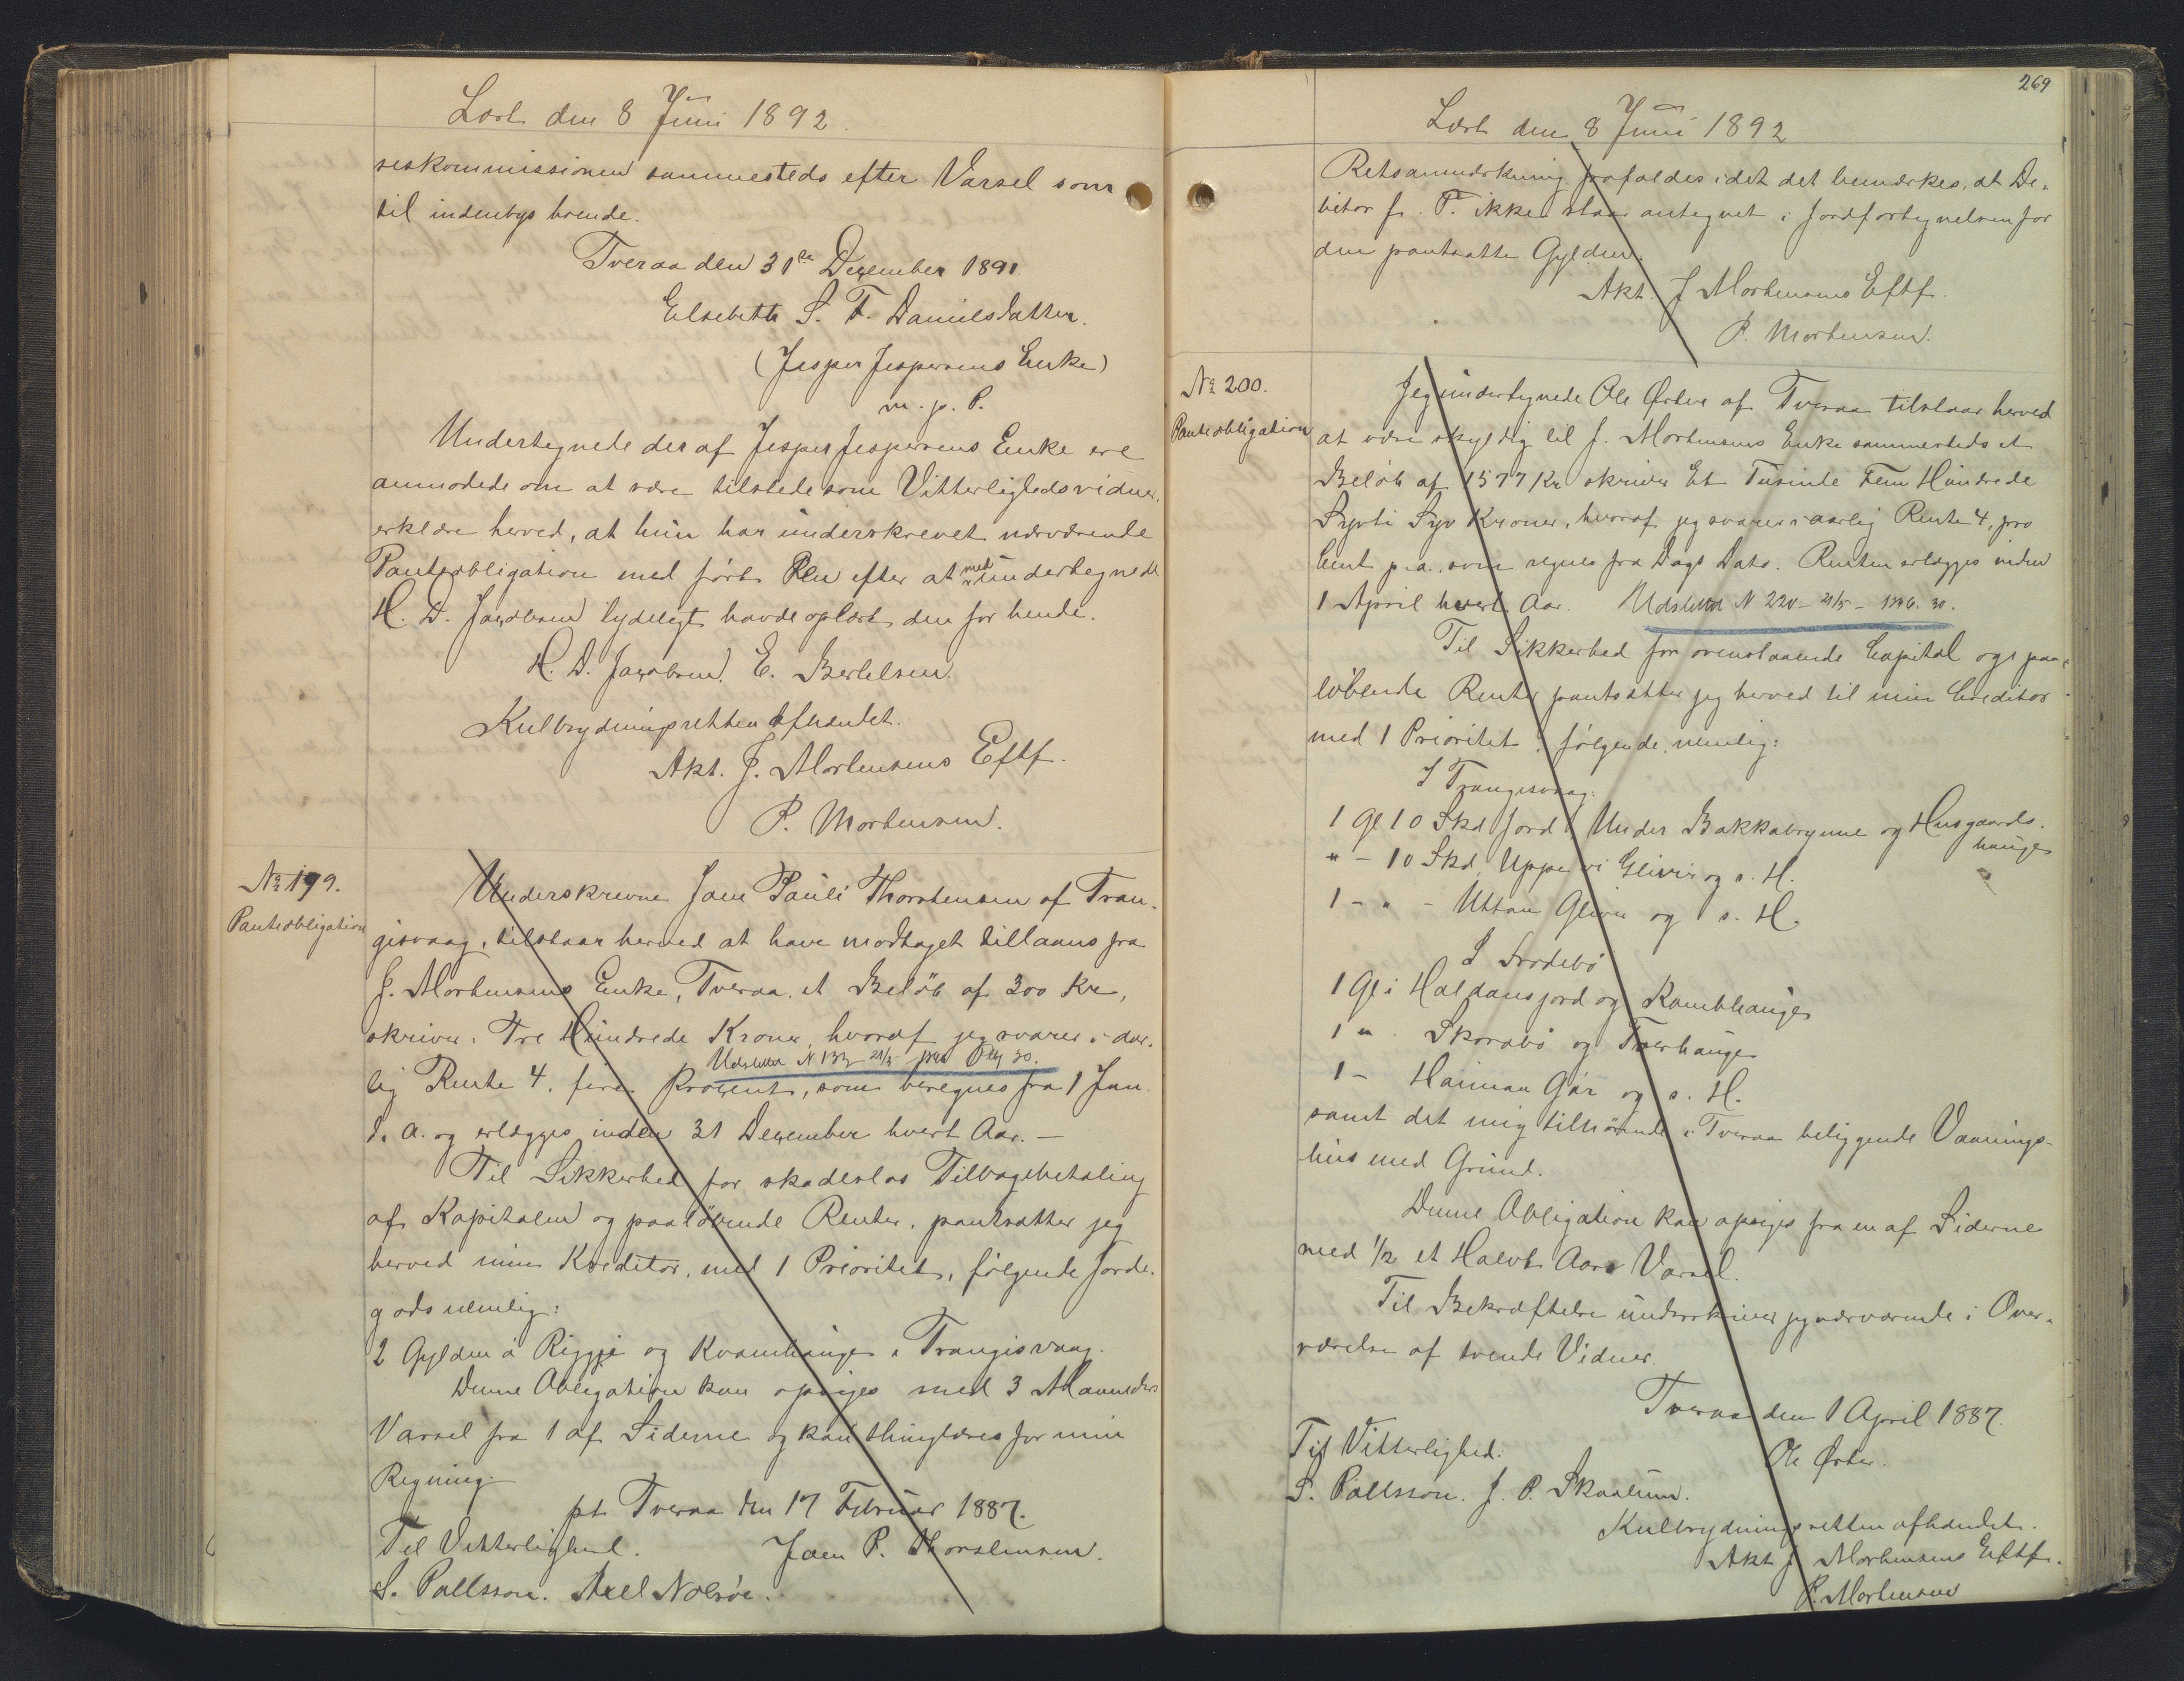 Læst den 8 Juni 1892.
seskommissionen sammesteds efter Varsel som
til indenbys boende.
Tveraa den 31te December 1891.
Elsebeth S. F. Danielsdatter.
(Jesper Jespersens Enke)
m. p. P.
Undertegnede der af Jesper Jespersens Enke ere
anmodede om at være tilstede som Vitterlighedsvidner,
erklære herved, at hun har underskrevet nærværende
Panteobligation med ført Pen efter at med undertegnede
H. D. Jacobsen tydeligt havde oplæst den for hende.
H. D. Jacobsen. E. Berthelsen.
Kulbrydningsretten afhændet.
Akt. J. Mortensens Eftf.
P. Mortensen.
No 199.
Panteobligation
Underskrevne Joen Pauli Thorstensen af Tran-
gisvaag, tilstaar herved at have modtaget tillaans fra
J. Mortensens Enke, Tveraa, et Beløb af 300 Kr,
skriver: Tre Hundrede Kroner, hvoraf jeg svarer i aar-
Udslettet N 132 21/5
lig Rente 4, fire Procent, som beregnes fra 1 Jan.
d. a. og erlægges inden 31 December hvert Aar. —
Til Sikkerhed for skadeslos Tilbagebetaling
af Kapitalen og paaløbende Renter, pantsætter jeg
herved min Kreditor, med 1 Prioritet, følgende Jorde-
gods nemlig:
2 Gylden á Riggje og Kvamhauge i Trangisvaag.
Denne Obligation kan opsiges med 3 Maaneders
Varsel fra 1 af Siderne og kan thinglæses for min
Regning.
pt. Tveraa den 17 Februar 1887.
Til Vitterlighed. Joen P. Thorstensen.
S. Pallsson. Axel Nolsøe.
269
Læst den 8 Juni 1892
Retsanmærkning frafaldes idet det bemærkes, at De-
bitor J. P. T. ikke staar antegnet i Jordfortegnelsen for
den pantsatte Gylden.
Akt. J Mortensens Eftf.
P. Mortensen.
No 200.
Panteobligation
Jeg undertegnede Ole Ørter af Tveraa tilstaar herved
at være skyldig til J. Mortensens Enke sammesteds et
Beløb af 1577 Kr skriver Et Tusinde Fem Hundrede
Syvti Syv Kroner, hvoraf jeg svarer i aarlig Rente 4, pro
Cent p. a. som regnes fra Dags Dato. Renten erlægges inden
1 April hvert Aar. Udslettet N 220 - 21/5 - 30.
Til Sikkerhed for ovenstaaende Capital og paa-
løbende Renter pantsætter jeg herved til min Creditor
med 1 Prioritet følgende, nemlig:
I Trangisvaag:
1 Gl 10 Skd Jord Under Bakkabrynne og Husgaards-
hauge
" - 10 Skd. Uppe vi Glivir og s. H.
1 - " - Uttan Glivir og s. H.
I Frodebø
1 Gl i Haldansjord og Kambhauge
1 " Skorabø og Tverhauge
1 - Heiman Gár og s. H.
samt det mig tilhørende i Tveraa beliggende Vaanings-
hus med Grund.
Denne Obligation kan opsiges fra en af Siderne
med 1/2 et Halvt Aars Varsel.
Til Bekræftelse underskriver jeg nærværende i Over-
værelse af tvende Vidner.
Tveraa den 1 April 1887.
Til Vitterlighed: Ole Ørter.
S. Pallsson. J. P. Skaalum.
Kulbrydningsretten afhændet.
Akt J Mortensens Eftf.
P. Mortensen